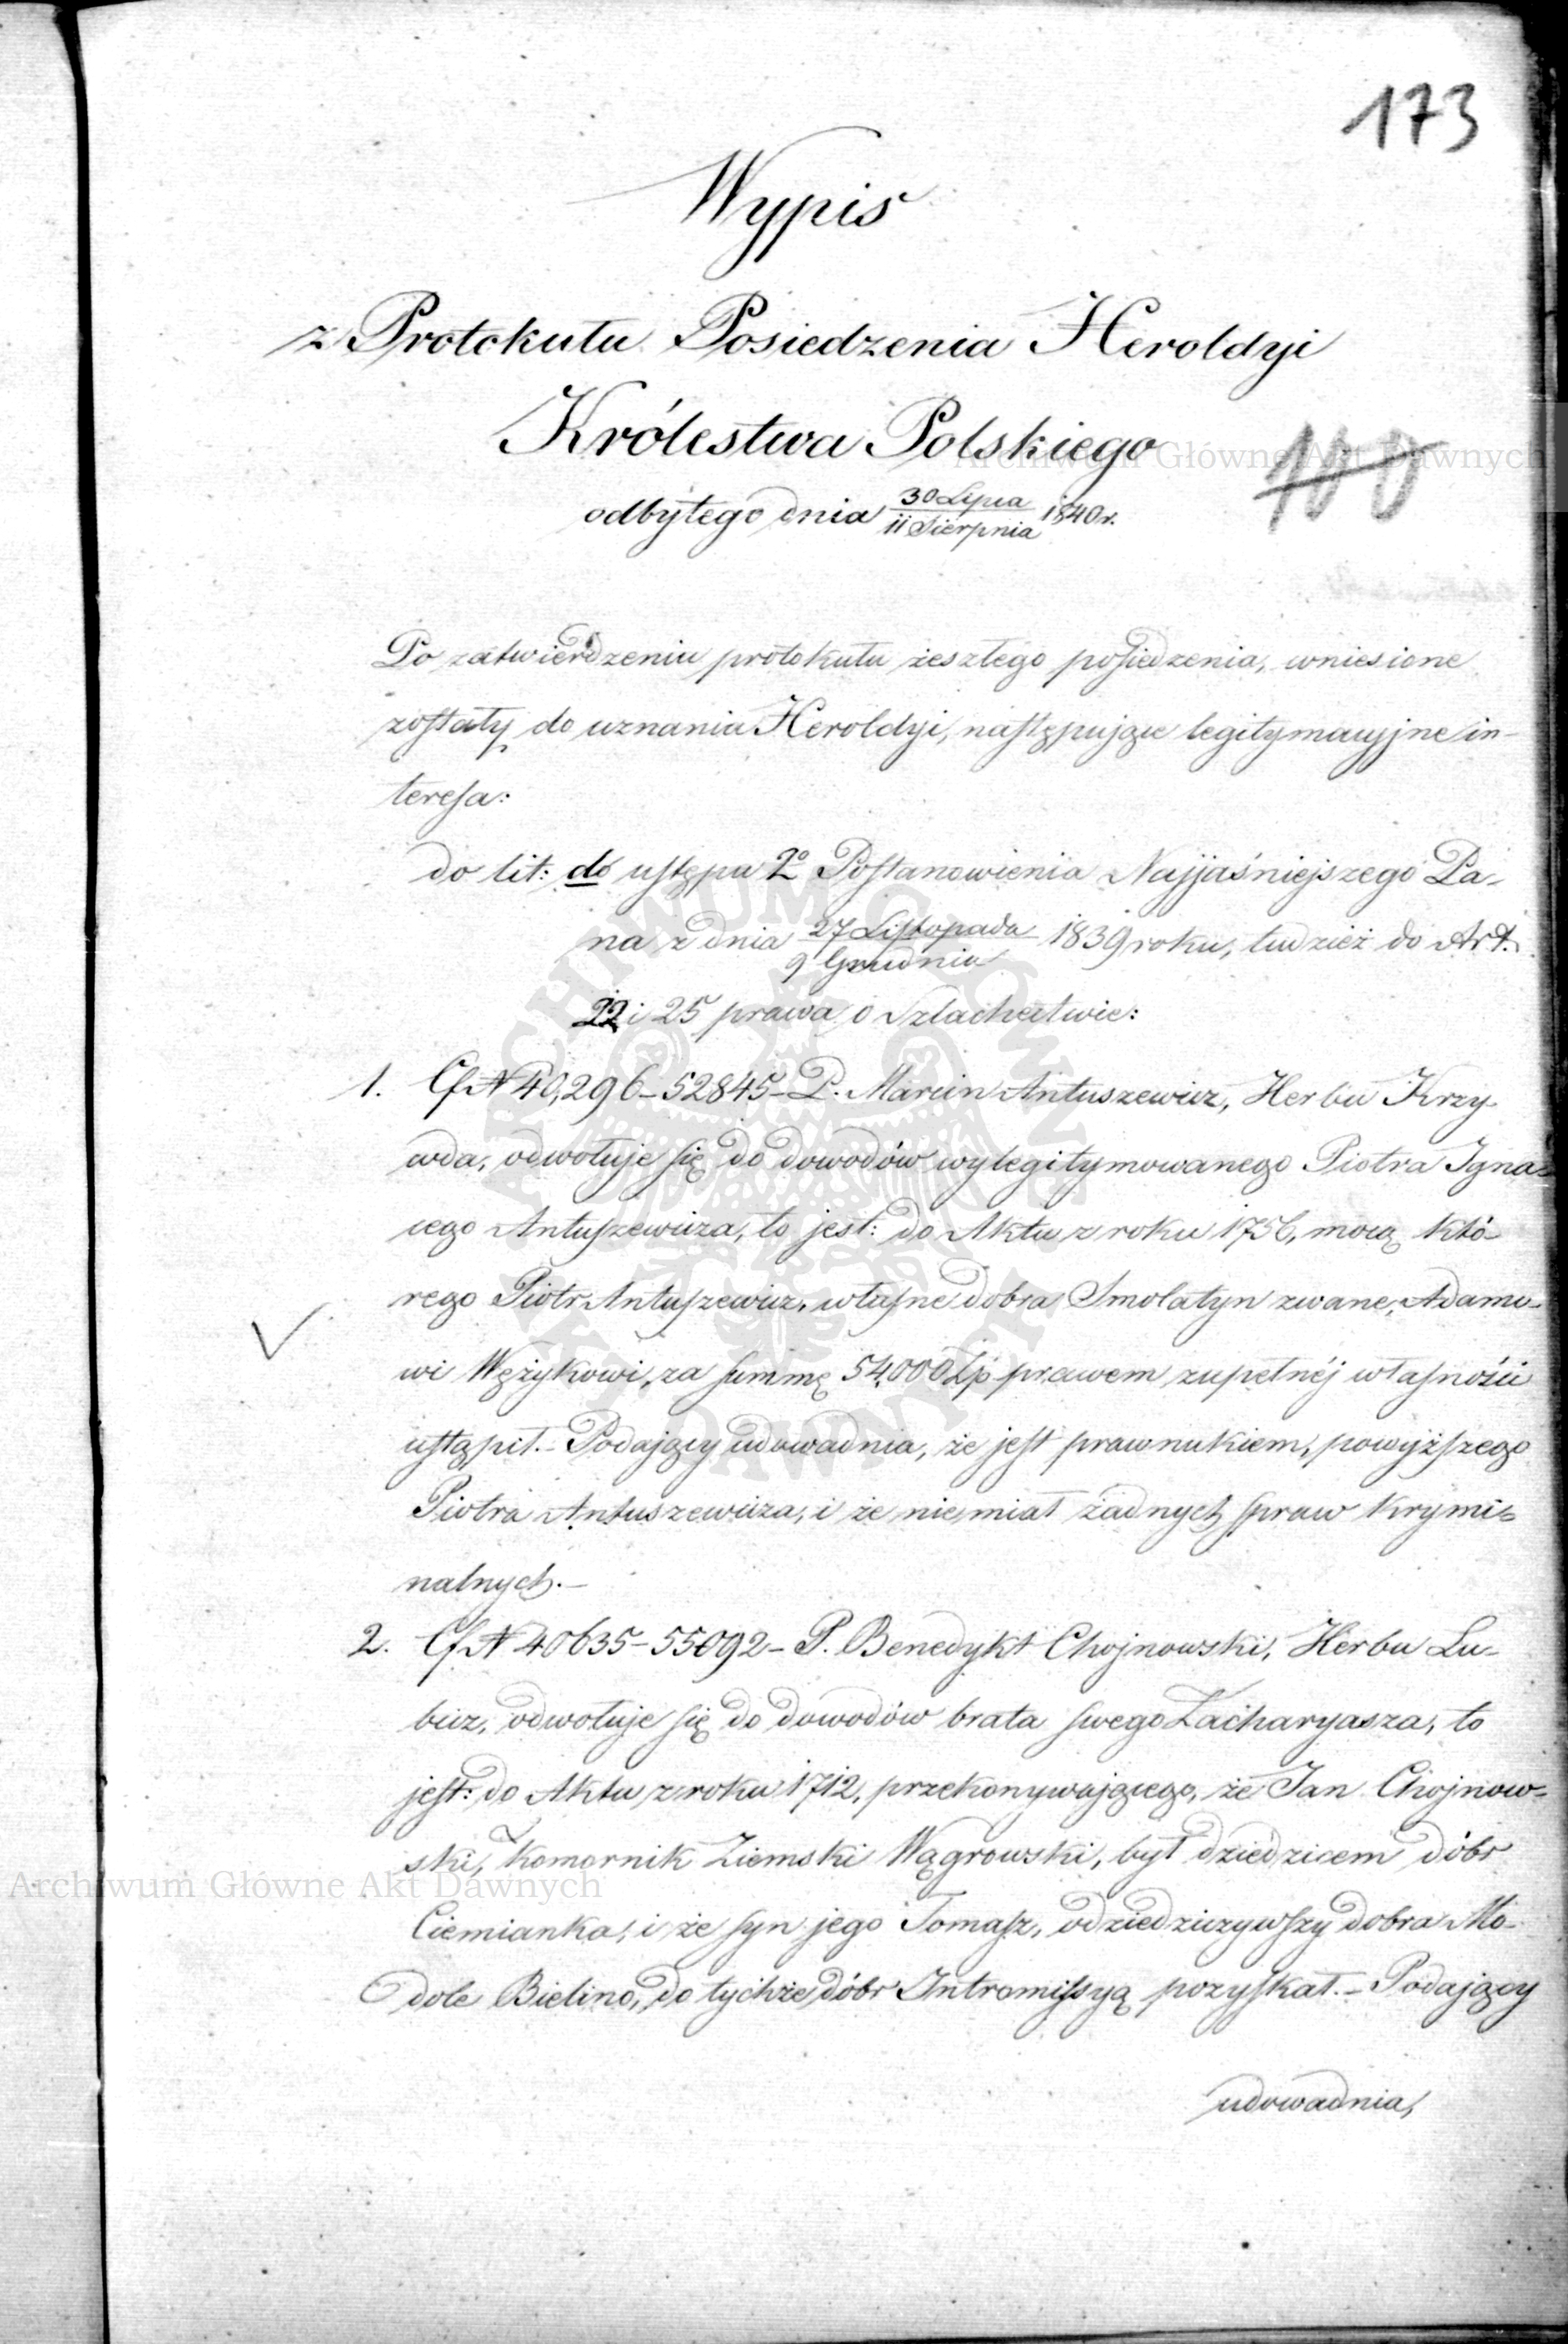 173
Wypis
z Protokułu Posiedzenia Heroldyi
Królestwa Polskiego
100
odbytego dnia 30 Lipca / 11 Sierpnia 1840 r.
Po zatwierdzeniu protokułu zeszłego posiedzenia, wniesione
zostały do uznania Heroldyi, następujące legitymacyjne in-
teresa:
do lit: d ustępu 2º Postanowienia Najjaśniejszego Pa-
na z dnia 27 Listopada / 9 Grudnia 1839 roku, tudzież do Art.
22 i 25 prawa o Szlachectwie:
1. Cf N 40,296-52845- P. Marcin Antuszewicz, Herbu Krzy-
wda, odwołuje się do dowodów wylegitymowanego Piotra Igna-
cego Antuszewicza, to jest: do Aktu z roku 1756, mocą któ-
rego Piotr Antuszewicz, własne dobra Smolatyn zwane, Adamo-
wi Wężykowi, za summę 54,000 Zp prawem zupełnéj własności
ustąpił.- Podający udowadnia, że jest prawnukiem, powyższego
Piotra Antuszewicza, i że nie miał żadnych spraw krymi-
nalnych.-
2. Cf N 40635-55092- P. Benedykt Chojnowski, Herbu Lu-
bicz, odwołuje się do dowodów brata swego Zacharyasza, to
jest: do Aktu z roku 1712, przekonywającego, że Jan Chojnow-
ski, Komornik Ziemski Wągrowski, był dziedzicem dóbr
Ciemianka, i że syn jego Tomasz, odziedziczywszy dobra Mo-
dole Bielino, do tychże dóbr Intromissyą pozyskał.- Podający
udowadnia,
Archiwum Główne Akt Dawnych
Archiwum Główne Akt Dawnych
ARCHIWUM GŁÓWNE AKT DAWNYCH